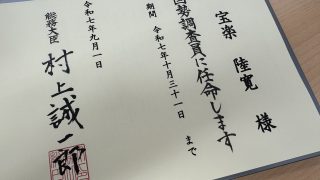 宝楽 陸寛 様
国勢調査員に任命します
期間 令和七年十月三十一日 まで
令和七年九月一日
総務大臣
村上誠一郎